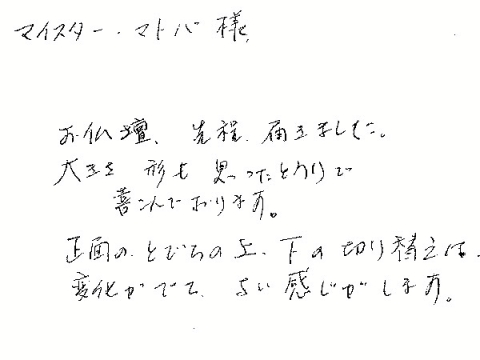 マイスター・マトバ様、
お仏壇、先程、届きました。
大きさ形も思ったとうりで
喜こんでおります。
正面のとびらの上、下の切り替えは、
変化がでて、よい感じがします。